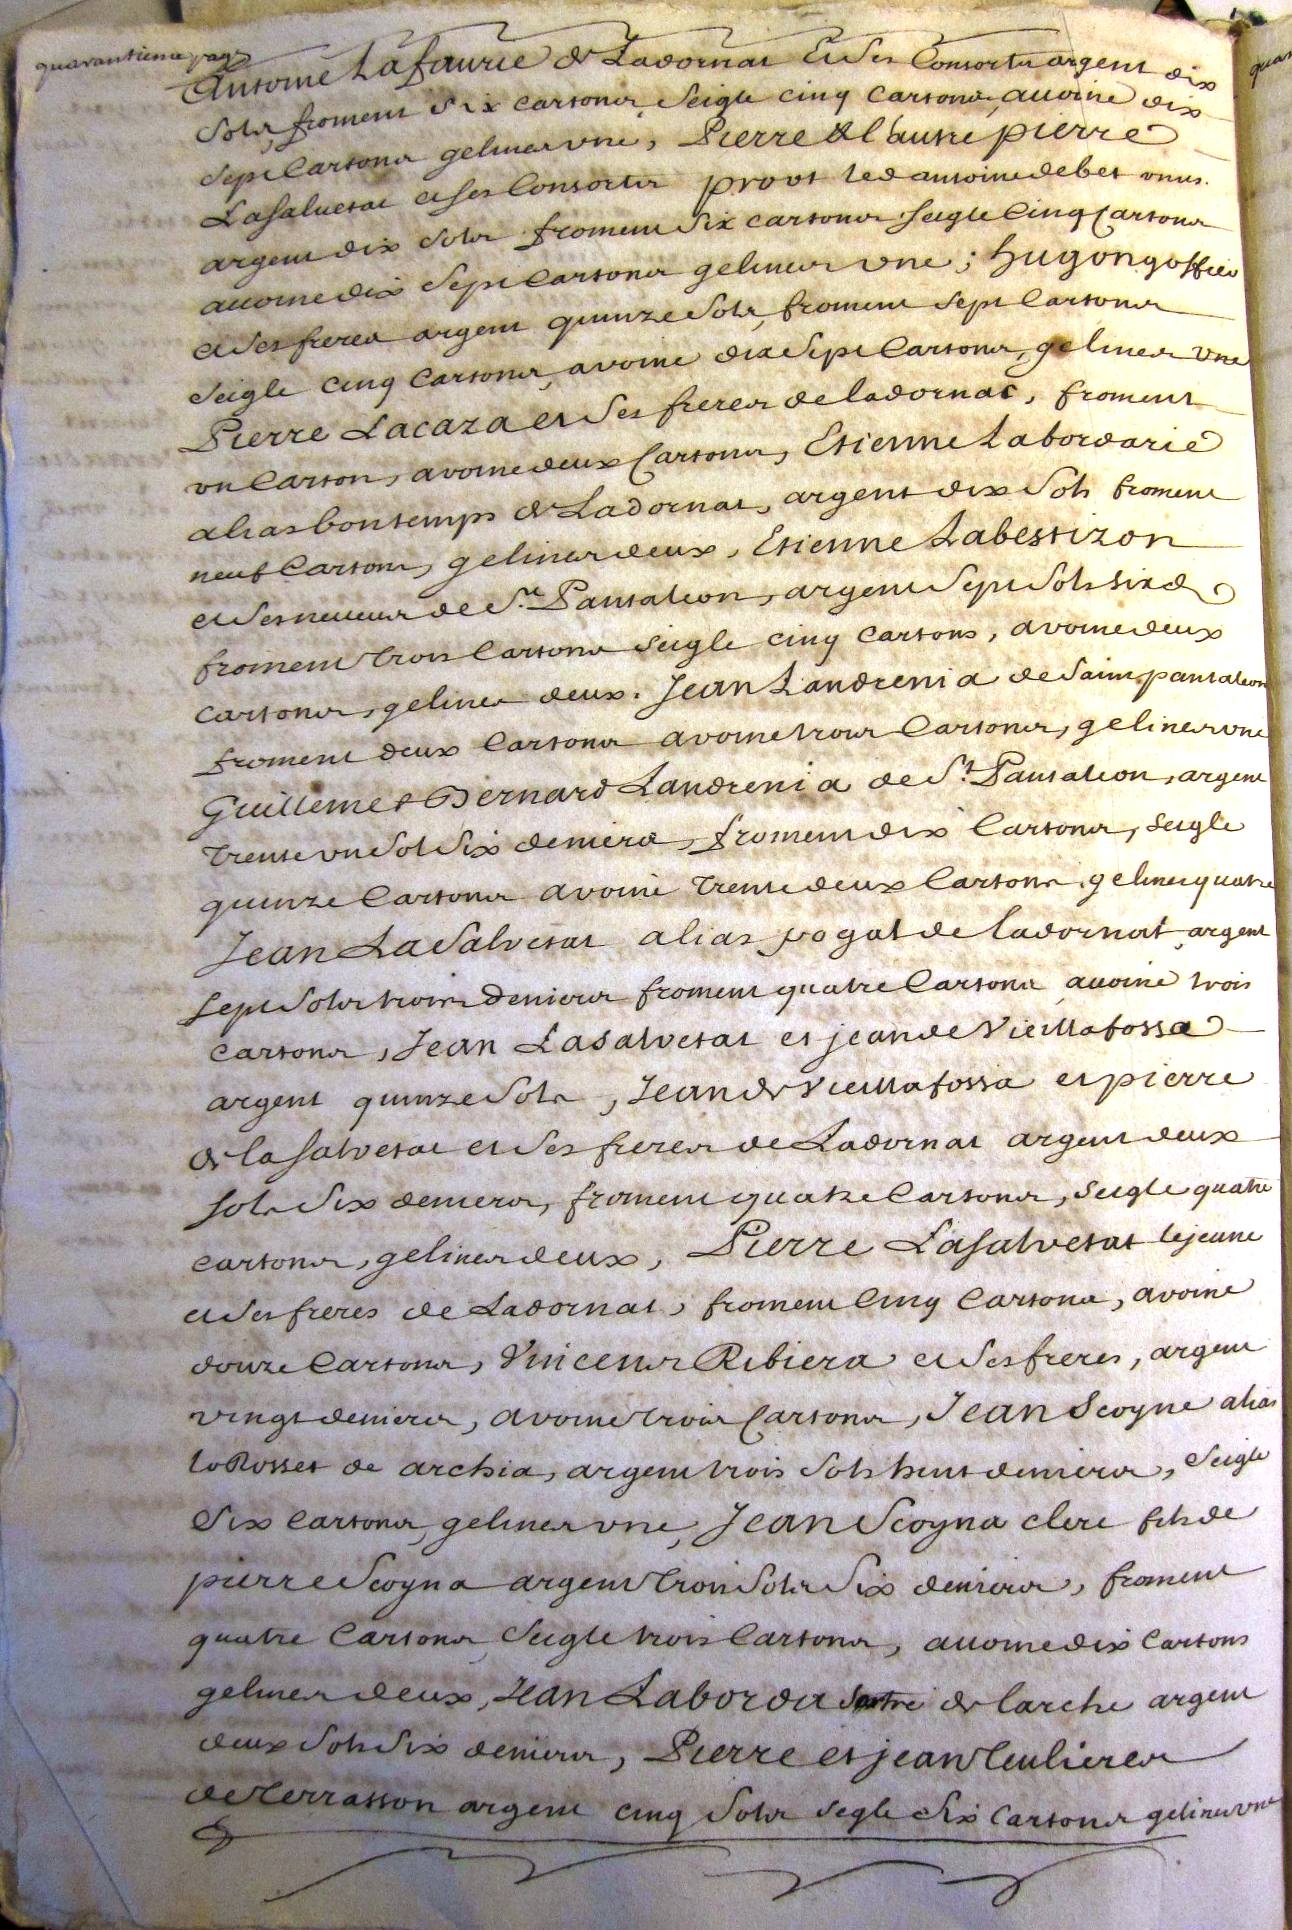 quarantieme page
Antoine Lafaurie de Ladornat et ses Consorts argent dix
sols, froment six cartons seigle cinq cartons, avoine dix
sept Cartons gelines une, Pierre & l'autre pierre
Lasalvetat et ses Consorts prout led antoine debet unus.
argent dix sols froment six cartons seigle Cinq Cartons
avoine dix sept Cartons gelines une; hugon goffier
et ses freres argent quinze sols, froment sept Cartons
seigle cinq Cartons, avoine dix sept Cartons, gelines une
Pierre Lacaza et ses freres de ladornac, froment
un Carton, avoine deux Cartons, Etienne Labordarie
alias bontemps de Ladornat, argent dix sols froment
neuf Cartons, gelines deux, Etienne Labestizon
et ses neveux de St. Pantaleon, argent sept sols six d
froment trois Cartons seigle cinq cartons, avoine deux
cartons, gelines deux. Jean Landrenia de Saint pantaleon
froment deux Cartons avoine trois Cartons, gelines une
Guillem et Bernard Landrenia de St. Pantaleon, argent
trente un sol six deniers, froment dix Cartons, seigle
quinze Cartons avoine trente deux Cartons, gelines quatre
Jean La Salvetat alias pogat de ladornat, argent
sept sols trois deniers froment quatre Cartons avoine trois
Cartons, Jean Lasalvetat et jean de Vieillafossa
argent quinze sols, Jean de Vieillafossa et pierre
de la salvetat et ses freres de Ladornat argent deux
sols six deniers, froment quatre Cartons, seigle quatre
cartons, gelines deux, Pierre Lasalvetat le jeune
et ses freres de Ladornat, froment Cinq Cartons, avoine
douze Cartons, Vincens Ribiera et ses freres, argent
vingt deniers, avoine trois Cartons, Jean Scoyne alias
lo Rosset de archia, argent trois sols huit deniers, seigle
six Cartons, gelines une, Jean Scoyna clerc fils de
pierre Scoyna argent trois sols six deniers, froment
quatre Cartons seigle trois Cartons, avoine dix Cartons
gelines deux, Jean Laborda sartre de larche argent
deux sols six deniers, Pierre et jean teulieres
de terrasson argent cinq sols segle six Cartons gelines une